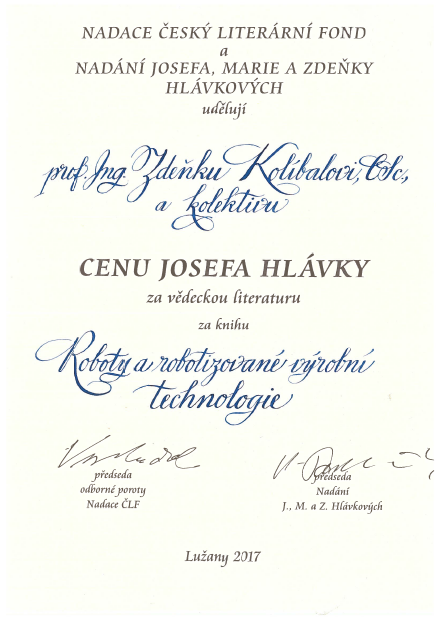 NADACE ČESKÝ LITERÁRNÍ FOND
a
NADÁNÍ JOSEFA, MARIE A ZDEŇKY
HLÁVKOVÝCH
udělují
prof. Ing. Zdeňku Kolíbalovi, CSc.,
a kolektivu
CENU JOSEFA HLÁVKY
za vědeckou literaturu
za knihu
Roboty a robotizované výrobní
technologie
předseda
odborné poroty
Nadace ČLF
předseda
Nadání
J., M. a Z. Hlávkových
Lužany 2017